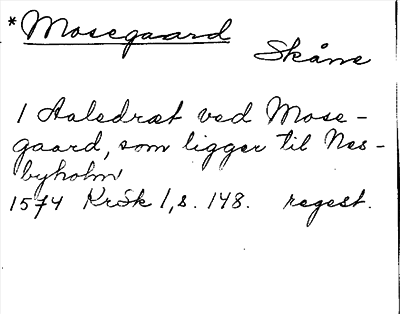 *Mosegaard
Skåne
1 Aaledræt ved Mose-
gaard, som ligger til Næs-
byholm
1574 KrSk 1,s. 148. regest.